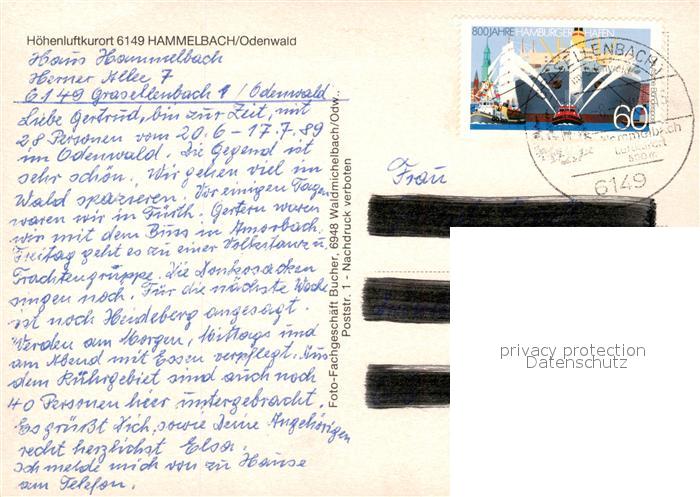 Höhenluftkurort 6149 HAMMELBACH/Odenwald
Haus Hammelbach
Herner Allee 7
6149 Grasellenbach 1 / Odenwald
Liebe Gertrud, bin zur Zeit, mit
28 Personen vom 20.6-17.7.89
im Odenwald. Die Gegend ist
sehr schön. Wir gehen viel im
Wald spazieren. Vor einigen Tagen
waren wir in Fürth. Gestern waren
wir mit dem Buss in Amorbach.
Freitag geht es zu einer Volkstanz u.
Trachtengruppe. Die Donkosacken
singen noch. Für die nächste Woche
ist noch Heideberg angesagt.
Werden am Morgen, Mittags und
am Abend mit Essen verpflegt. Aus
dem Ruhrgebiet sind auch noch
40 Personen hier untergebracht.
Es grüßt Dich, sowie Deine Angehörigen
recht herzlichst Elsa.
Ich melde mich von zu Hause
am Telefon.
Foto-Fachgeschäft Bucher, 6948 Waldmichelbach/Odw.,
Poststr. 1 - Nachdruck verboten
800 JAHRE HAMBURGER HAFEN
60
GRASELLENBACH 1
Hammelbach
Luftkurort
6149
Frau
privacy protection
Datenschutz